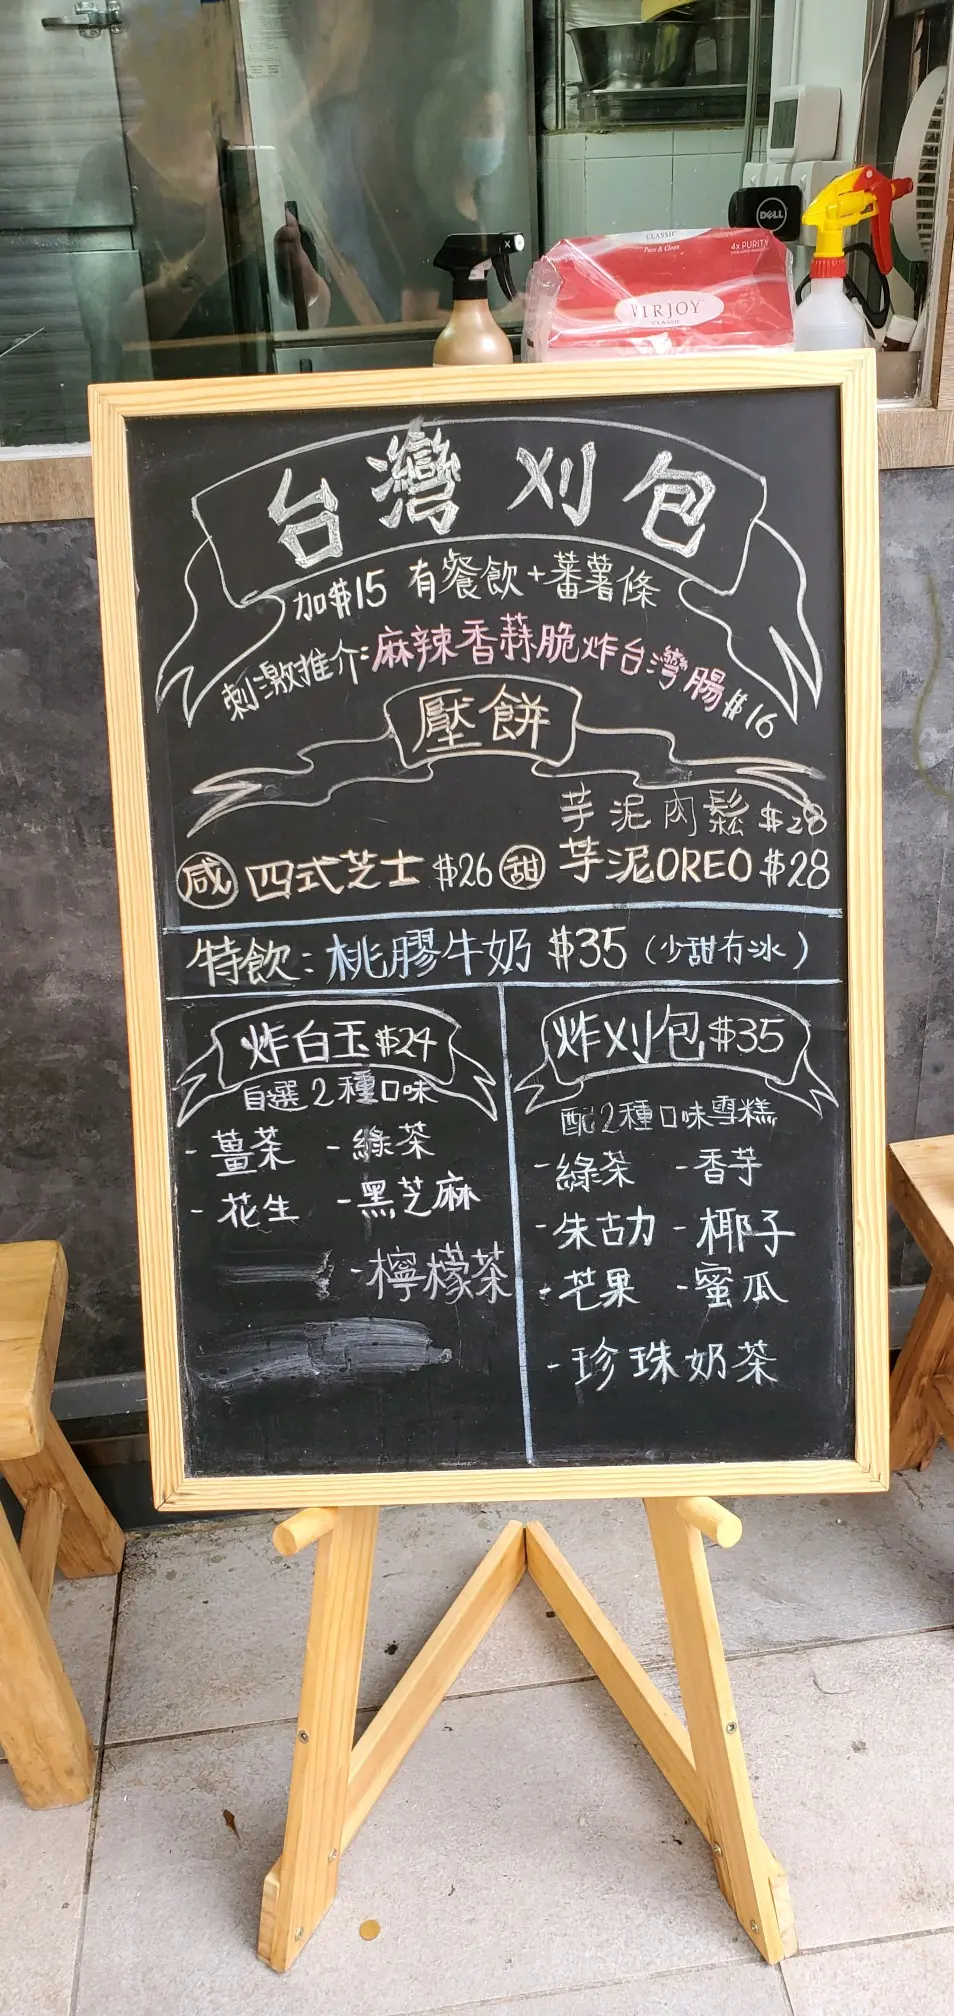 CLASSIC
Pure & Clean
4x PURITY
VIRJOY
CLASSIC
DELL
台灣刈包
加$15 有餐飲+蕃薯條
刺激推介:麻辣香蒜脆炸台灣腸$16
壓餅
芋泥肉鬆$28
咸 四式芝士 $26 甜 芋泥OREO $28
特飲:桃膠牛奶 $35 (少甜冇冰)
炸白玉$24
自選2種口味
- 薑茶 - 綠茶
- 花生 - 黑芝麻
- 檸檬茶
炸刈包$35
配2種口味雪糕
- 綠茶 - 香芋
- 朱古力 - 椰子
- 芒果 - 蜜瓜
- 珍珠奶茶